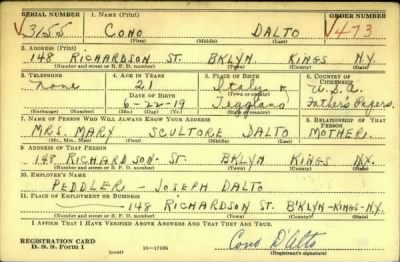 SERIAL NUMBER 1. NAME (Print) ORDER NUMBER
√3155 CONO DALTO √473
(First) (Middle) (Last)
2. ADDRESS (Print)
148 RICHARDSON ST. BKLYN. KINGS N.Y.
(Number and street or R. F. D. number) (Town) (County) (State)
3. TELEPHONE 4. AGE IN YEARS 5. PLACE OF BIRTH 6. COUNTRY OF CITIZENSHIP
None 21 Italy U.S.A.
DATE OF BIRTH (Town or county)
6-22-19 Teggiano Fathers Papers.
(Exchange) (Number) (Mo.) (Day) (Yr.) (State or country)
7. NAME OF PERSON WHO WILL ALWAYS KNOW YOUR ADDRESS 8. RELATIONSHIP OF THAT PERSON
MRS. MARY SCULTORE DALTO MOTHER.
(Mr., Mrs., Miss) (First) (Middle) (Last)
9. ADDRESS OF THAT PERSON
148 RICHARDSON- ST. BKLYN KINGS N.Y.
(Number and street or R. F. D. number) (Town) (County) (State)
10. EMPLOYER'S NAME
PEDDLER – JOSEPH DALTO
11. PLACE OF EMPLOYMENT OR BUSINESS
148 RICHARDSON ST. B'KLYN-KINGS-N.Y.
(Number and street or R. F. D. number) (Town) (County) (State)
I AFFIRM THAT I HAVE VERIFIED ABOVE ANSWERS AND THAT THEY ARE TRUE.
REGISTRATION CARD
D. S. S. Form 1 (over) 16—17105 Cono D'Alto
(Registrant's signature)